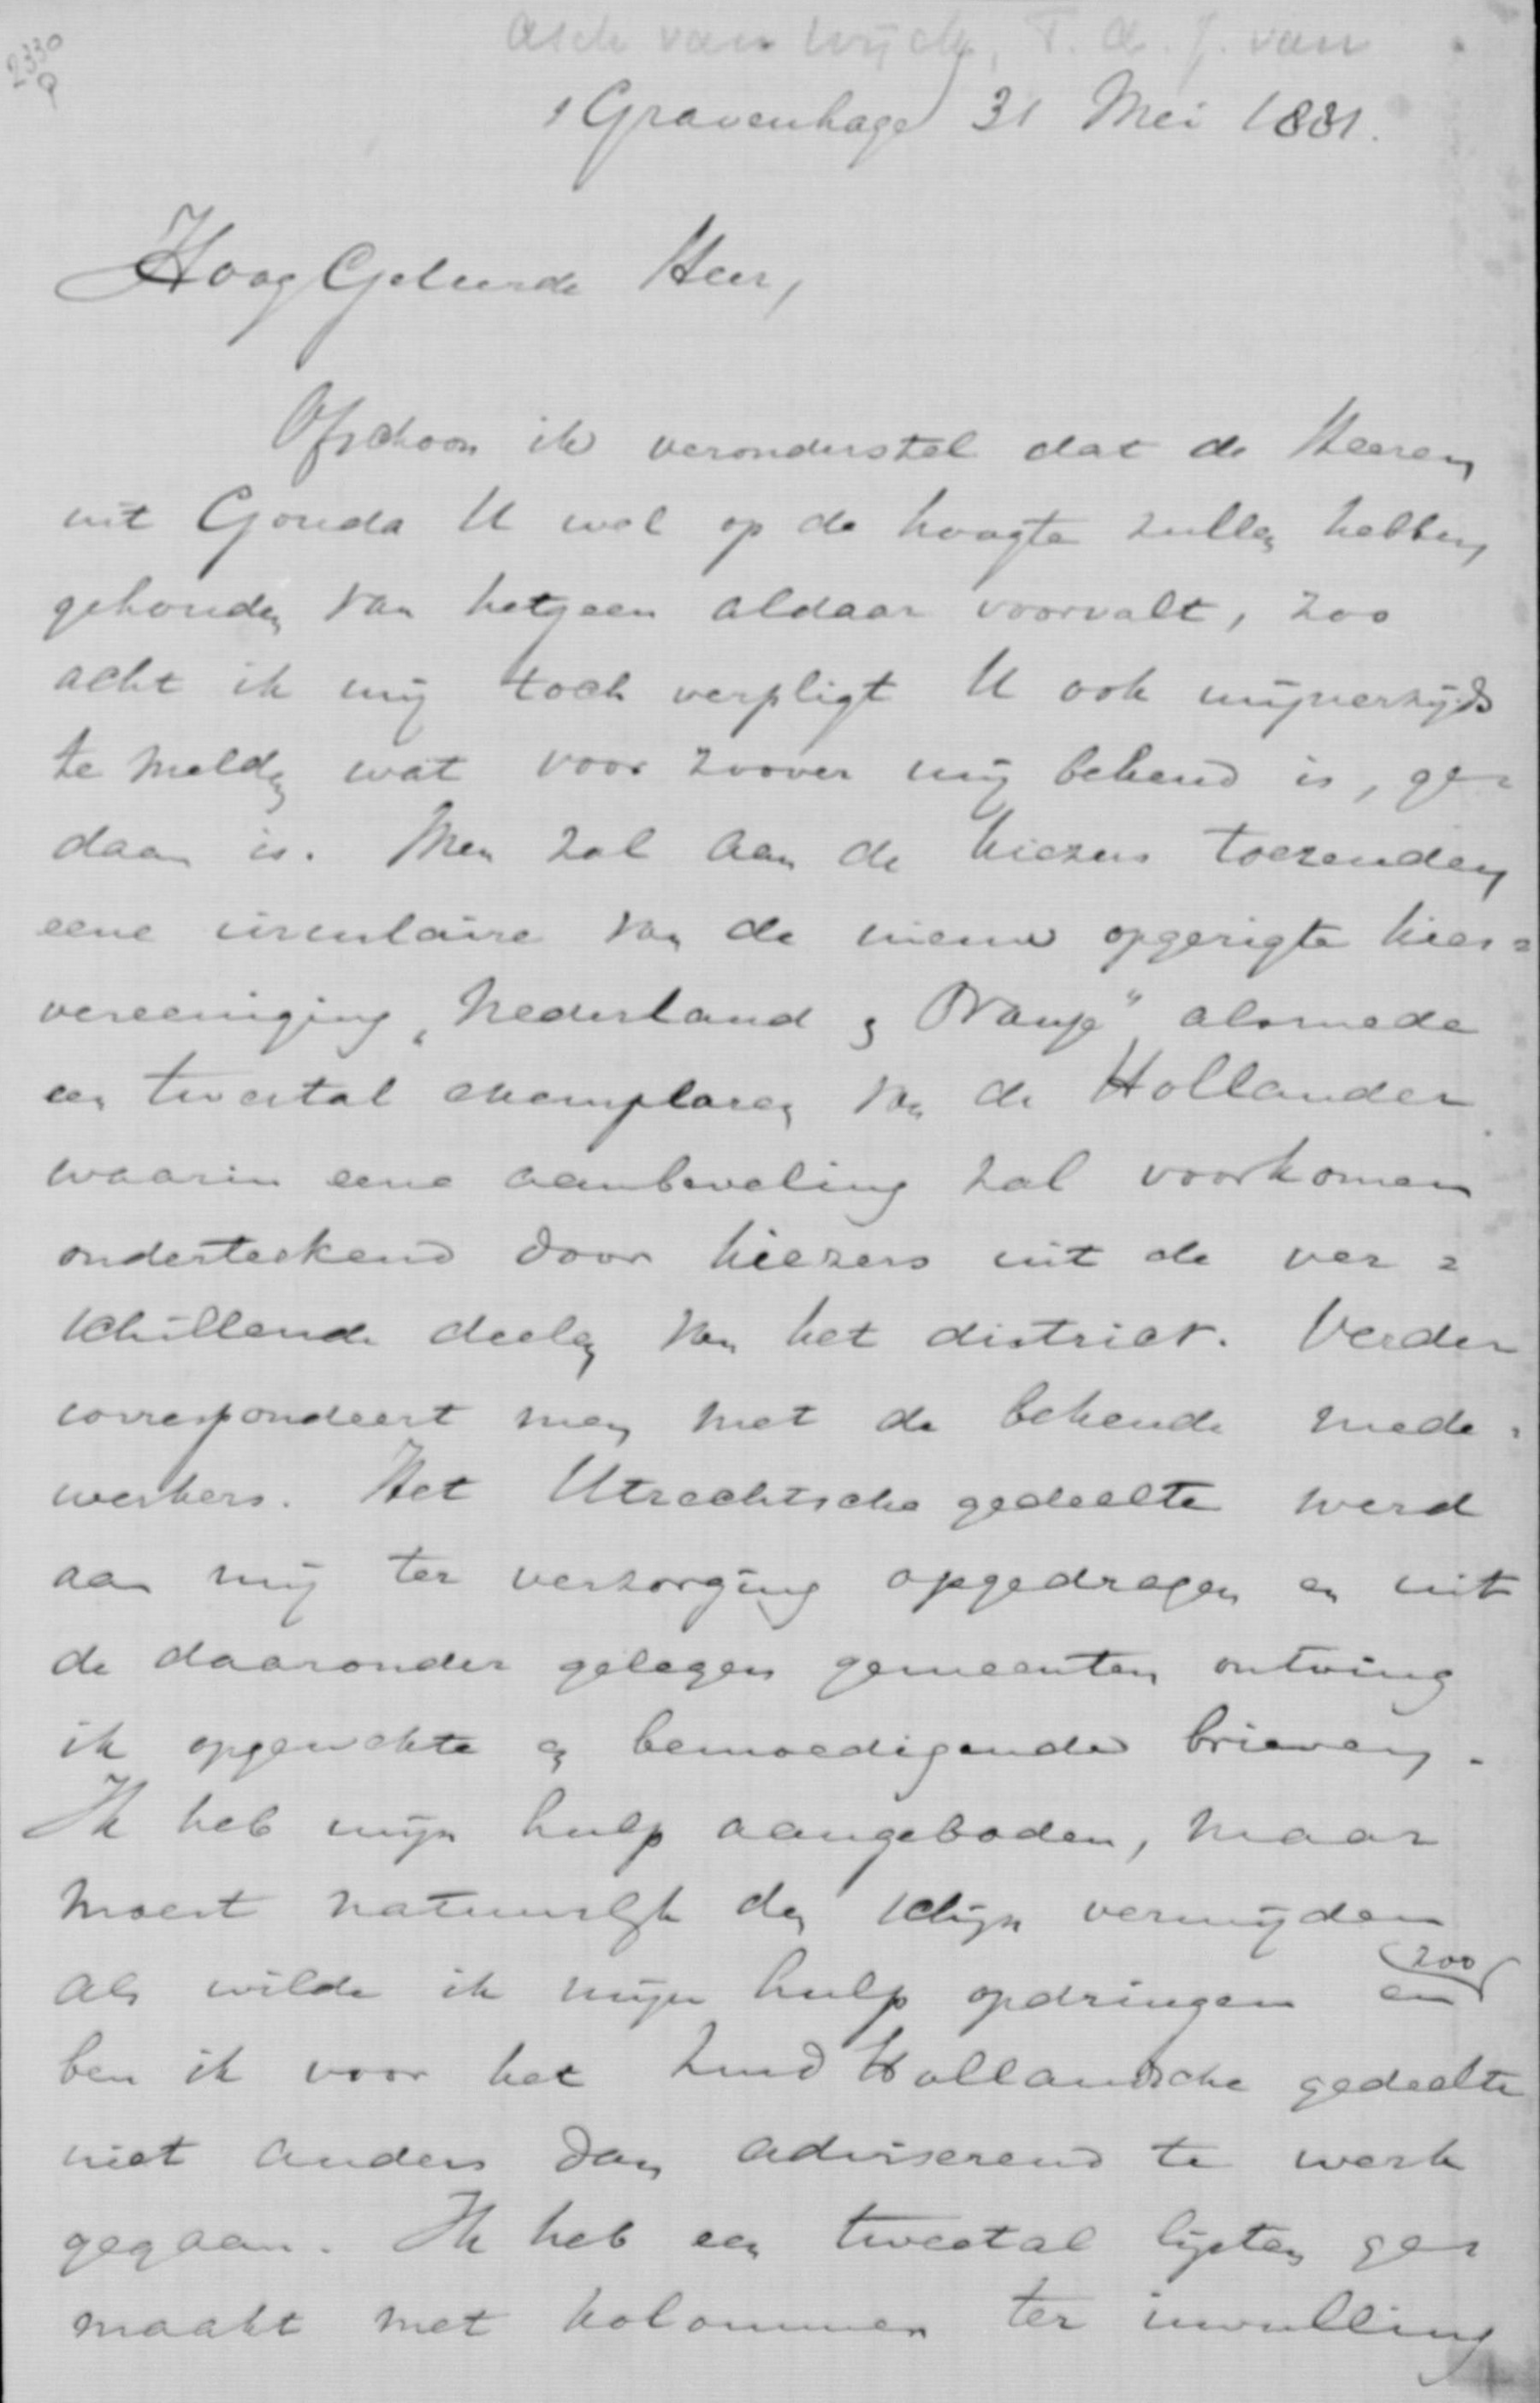 2330
Q
Asch van Wijck, T. A. J. van
'sGravenhage 31 Mei 1881.
HoogGeleerde Heer,
Ofschoon ik veronderstel dat de Heeren
uit Gouda U wel op de hoogte zullen hebben
gehouden van hetgeen aldaar voorvalt, zoo
acht ik mij toch verpligt U ook mijnerzijds
te melden wat voor zoover mij bekend is, ge=
daan is. Men zal aan de kiezers toezenden
eene circulaire van de nieuw opgerigte kies=
vereeniging "Nederland & Oranje" alsmede
een tweetal exemplaren van de Hollander
waarin eene aanbeveling zal voorkomen
onderteekend door kiezers uit de ver=
schillende deelen van het district. Verder
correspondeert men met de bekende mede=
werkers. Het Utrechtsche gedeelte werd
aan mij ter verzorging opgedragen en uit
de daaronder gelegen gemeenten ontving
ik opgewekte en bemoedigende brieven.
Ik heb mijn hulp aangeboden, maar
moest natuurlijk den schijn vermijden
als wilde ik mijn hulp opdringen en zoo
ben ik voor het Zuid Hollandsche gedeelte
niet anders dan adviserend te werk
gegaan. Ik heb een tweetal lijsten ge=
maakt met kolommen ter invulling